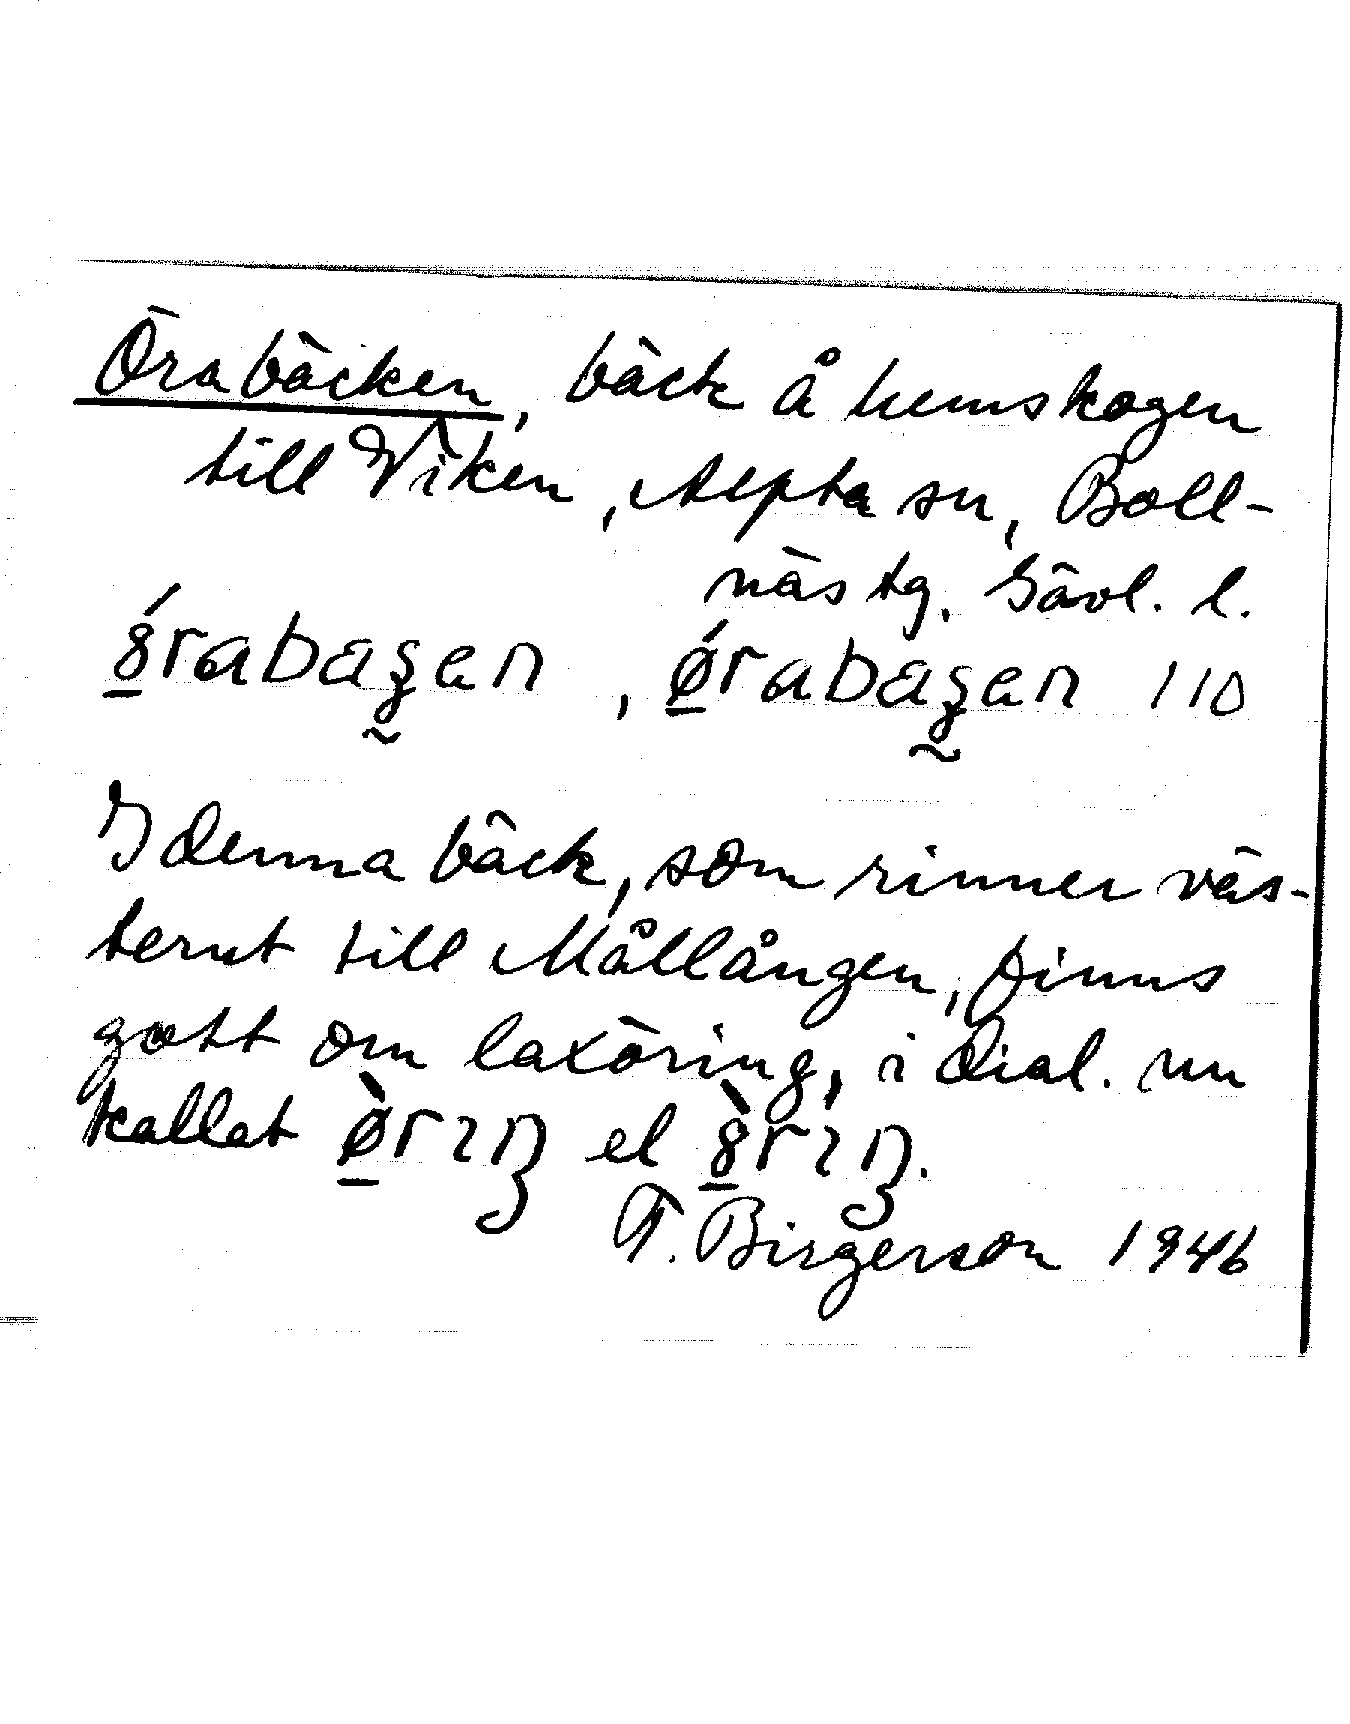 Örabäcken, bäck å hemskogen
till Viken, Alfta sn, Boll-
näs tg. Gävl. l.
ørabaʒen 110
I denna bäck, som rinner väs-
terut till Mållången, finns
gott om laxöring, i dial. nu
kallat el
T. Birgerson 1946